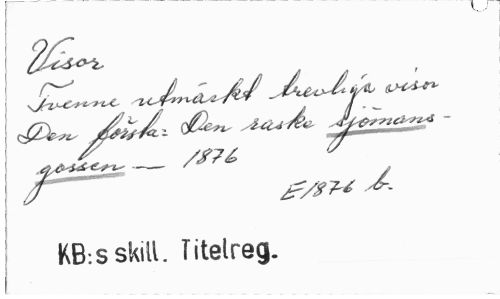 Visor
Tvenne utmärkt trevliga visor
Den första: Den raske sjömans-
gossen — 1876
E1876 b.
KB:s skill. Titelreg.